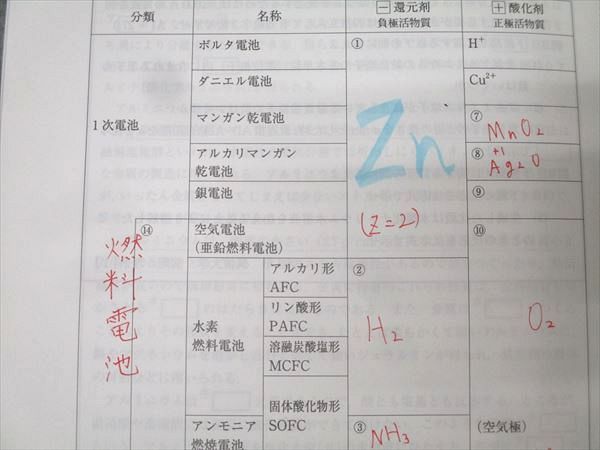 分類 名称 － 還元剤 ＋ 酸化剤
負極活物質 正極活物質
ボルタ電池 ① H⁺
ダニエル電池 Cu²⁺
1次電池
マンガン乾電池 Zn ⑦ MnO₂
アルカリマンガン ⑧ +1
乾電池 Ag₂O
銀電池 ⑨
⑭ 空気電池 (Z=2) ⑩
(亜鉛燃料電池)
燃料電池
アルカリ形 ②
AFC
水素
燃料電池
リン酸形 H₂ O₂
PAFC
溶融炭酸塩形
MCFC
固体酸化物形
SOFC
アンモニア ③ NH₃ (空気極)
燃焼電池